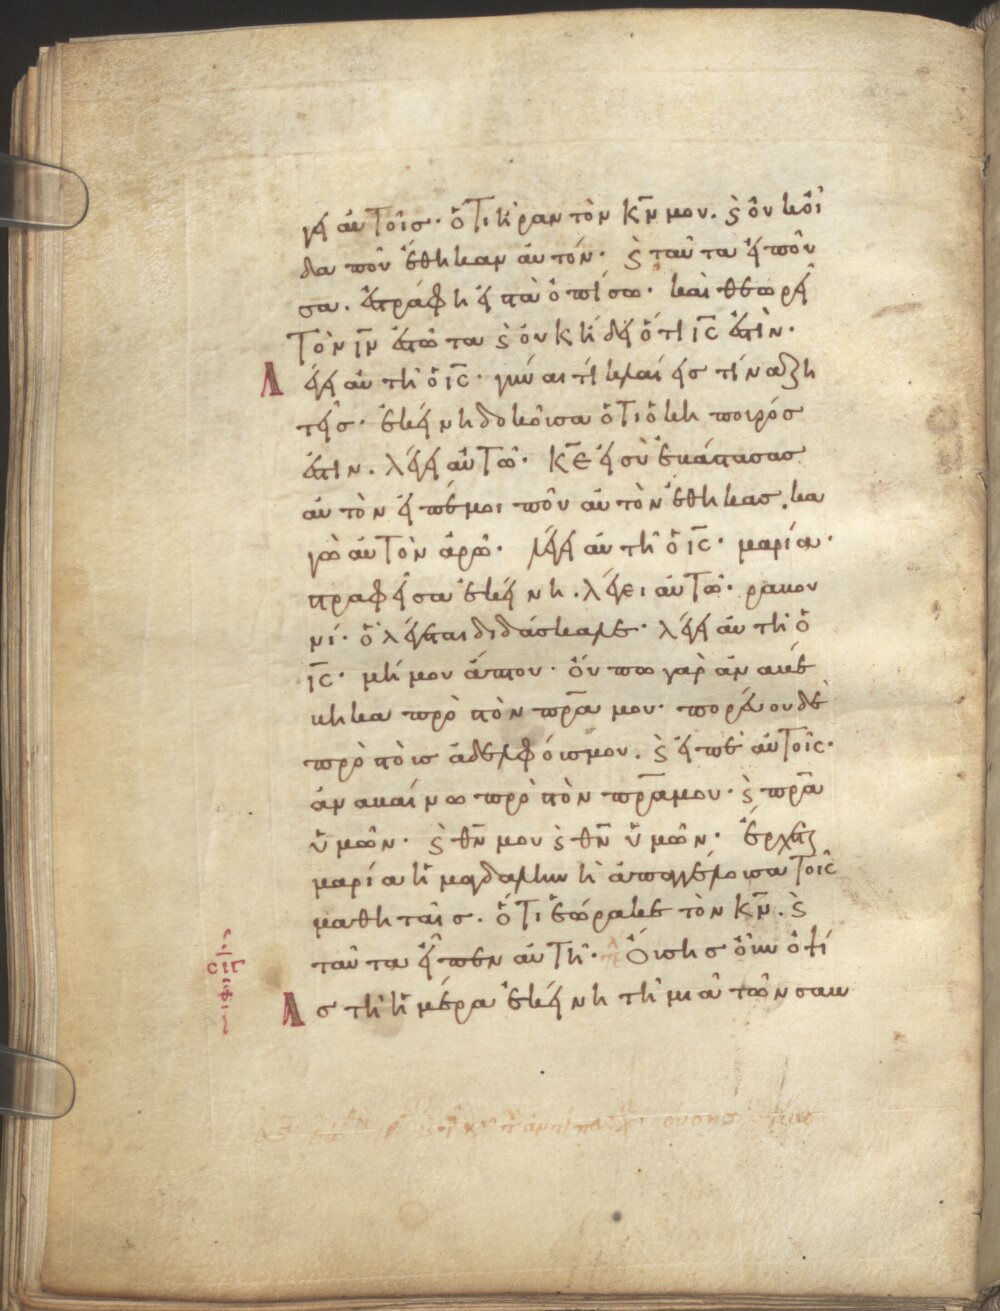 γει αυτοῖς· ὅτι ἦραν τὸν κ̅ν̅ μου. ϗ οὐκ οἶ
δα ποῦ ἔθηκαν αὐτόν· ϗ ταῦτα εἰποῦ
σα. ἐστράφη εἰς τὰ ὀπίσω· καὶ θεωρεῖ
τὸν ι̅ν̅ ἑστῶτα ϗ οὐκ ᾔδει ὅτι ι̅ς̅ ἐστὶν·
Λέγει αὐτῆ ὁ ι̅ς̅· γύναι τί κλαίεις τίνα ζη
τεῖς· ἐκείνη δοκοῦσα ὅτι ὁ κηπουρός
ἐστιν. λέγει αὐτῶ· κ̅ε̅ εἰ σὺ ἐβάστασας
αὐτὸν εἰπέ μοι ποῦ αὐτὸν ἔθηκας. κα
γὼ αὐτὸν ἀρῶ· λέγει αὐτῆ ὁ ι̅ς̅· μαρία·
στραφεῖσα ἐκείνη. λέγει αὐτῶ· ραβου
νί· ὃ λέγεται διδάσκαλε· λέγει αὐτῆ ὁ
ι̅ς̅· μή μου ἅπτου· οὔπω γὰρ ἀναβέ
βηκα πρὸς τὸν π̅ρ̅α̅ μου· πορεύου δὲ
πρὸς τοὺς ἀδελφούς μου. ϗ εἰπὲ αὐτοῖς·
ἀναβαίνω πρὸς τὸν π̅ρ̅α̅ μου· ϗ π̅ρ̅α̅
ὑμῶν· ϗ θ̅ν̅ μου ϗ θ̅ν̅ ὑμῶν· ἔρχεται
μαρία ἡ μαγδαληνὴ ἀπαγγέλουσα τοῖς
μαθηταῖς. ὅτι ἑώρακε τὸν κ̅ν̅. ϗ
ταῦτα εἶπεν αὐτῆ· Οὔσης οὖν ὀψί
ας τῆ ἡμέρα ἐκείνη τῆ μιᾶ τῶν σαβ